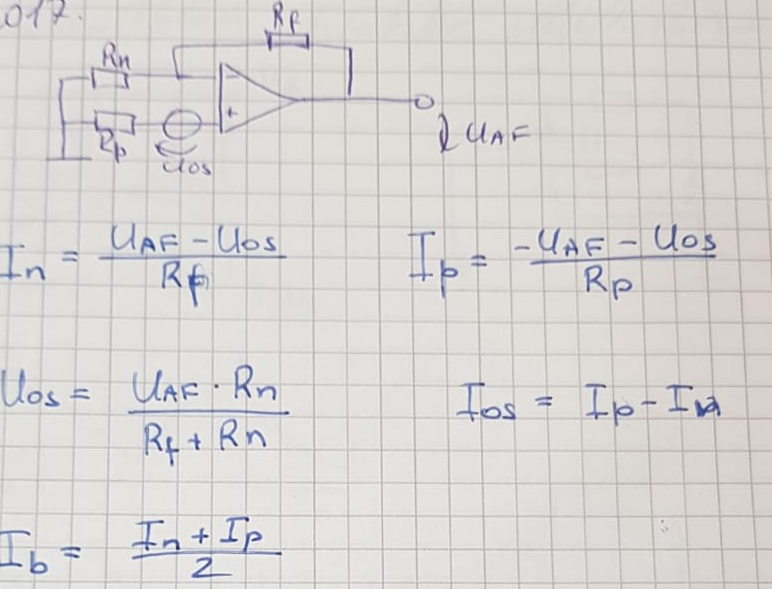 017.
Rf
Rn
-
+
Rp
Uos
UAF
In = UAF - Uos / Rf
Ip = -UAF - Uos / Rp
Uos = UAF · Rn / Rf + Rn
Ios = Ip - In
Ib = In + Ip / 2